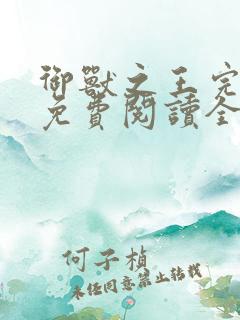 御獸之王完
免費閱讀全
何子楨
未經同意禁止轉載